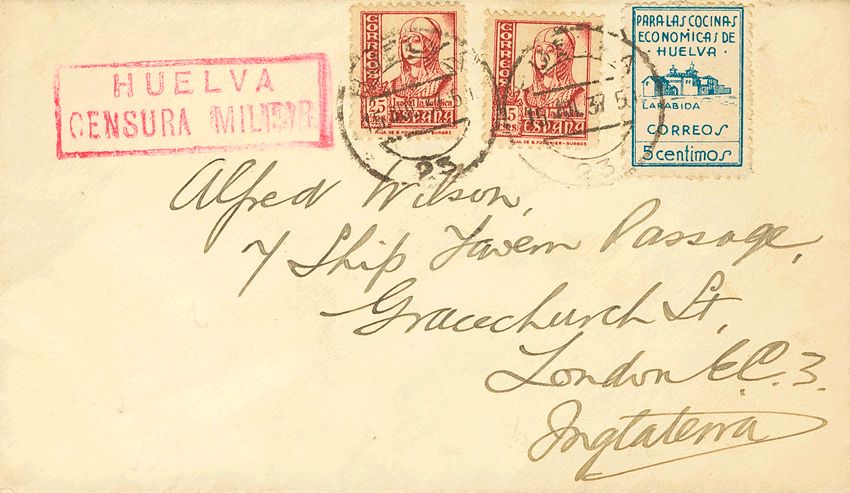 HUELVA
CENSURA MILITAR
CORREOS
25 cts
Isabel la Católica
ESPAÑA
HIJA DE B. FOURNIER-BURGOS
CORREOS
ESPAÑA
HIJA DE B. FOURNIER-BURGOS
37
23
23
PARA LAS COCINAS
ECONOMICAS DE
· HUELVA ·
LA RABIDA
CORREOS
5 centimos
Alfred Wilson,
7 Ship Tavern Passage,
Gracechurch St,
London E.C.3.
Inglaterra